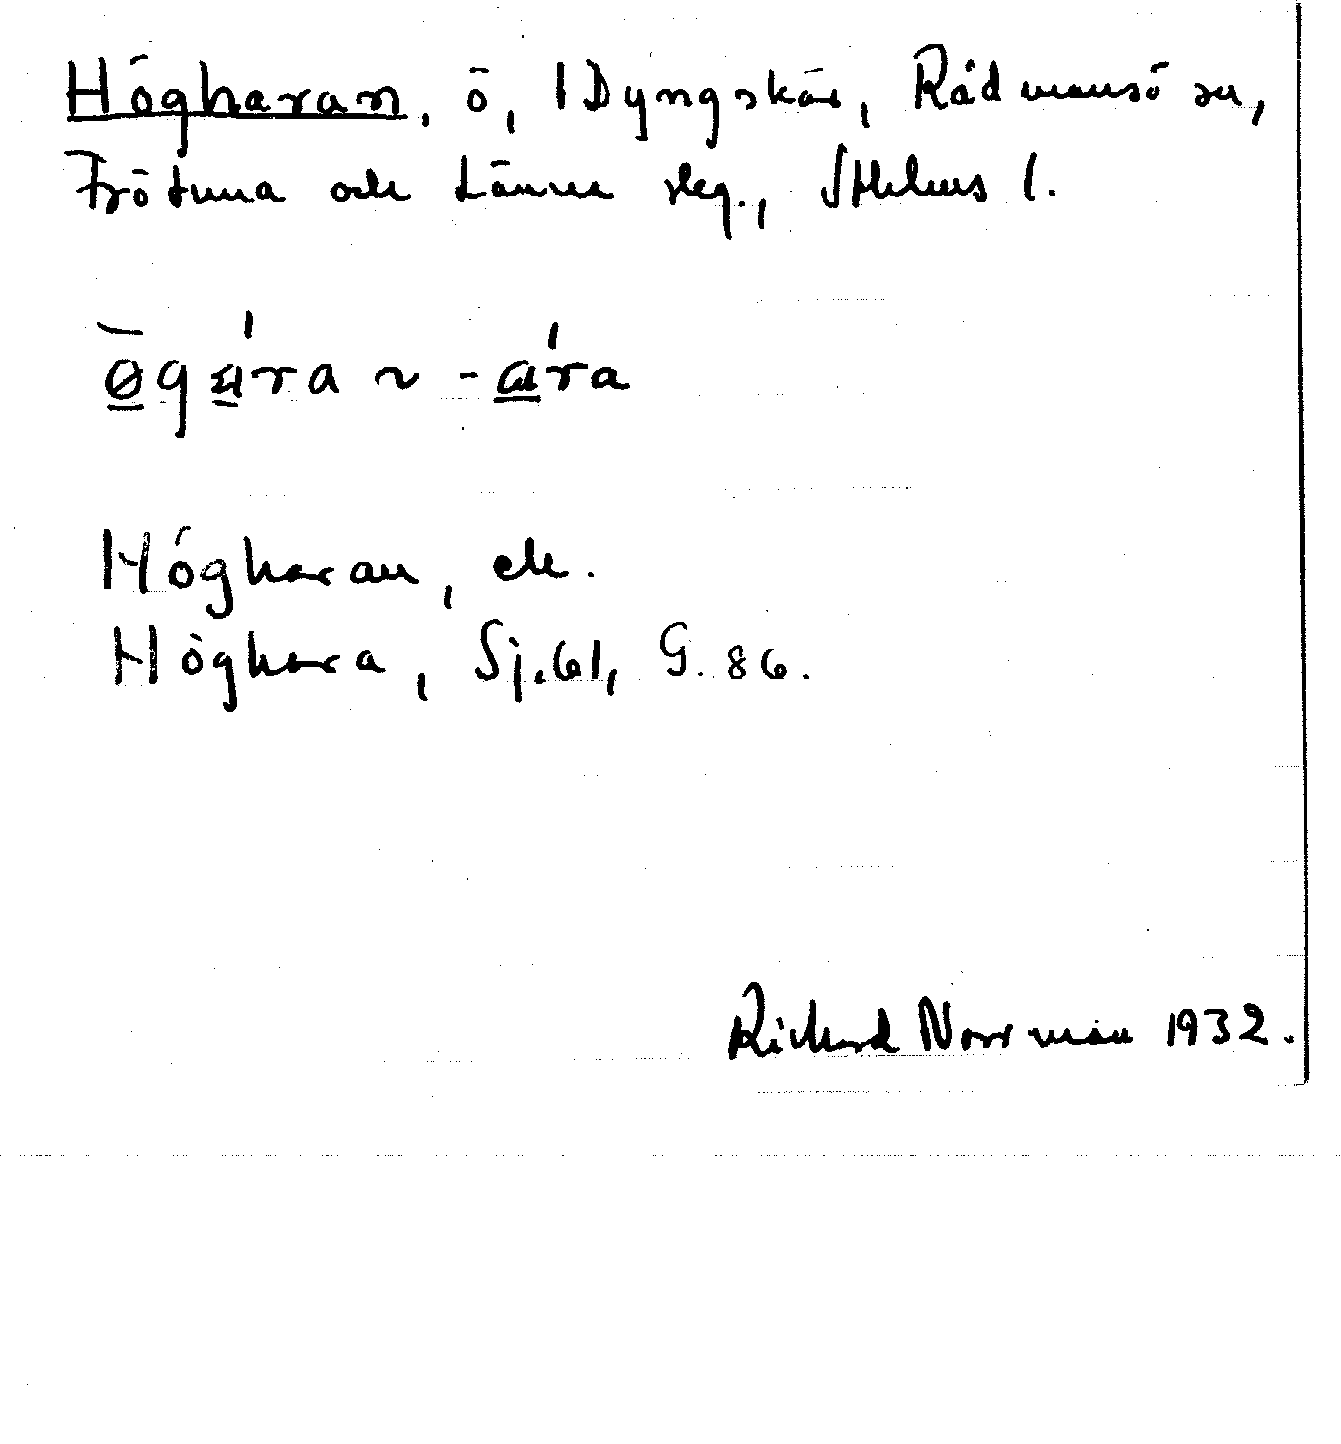 Högharan, ö, 1 Dyngskär, Rådmansö sn,
Frötuna och Länna skg., Sthlms l.
øgára ~ -ára
Högharan, ek.
Höghara, Sj. 61, G. 86.
Richard Norrman 1932.